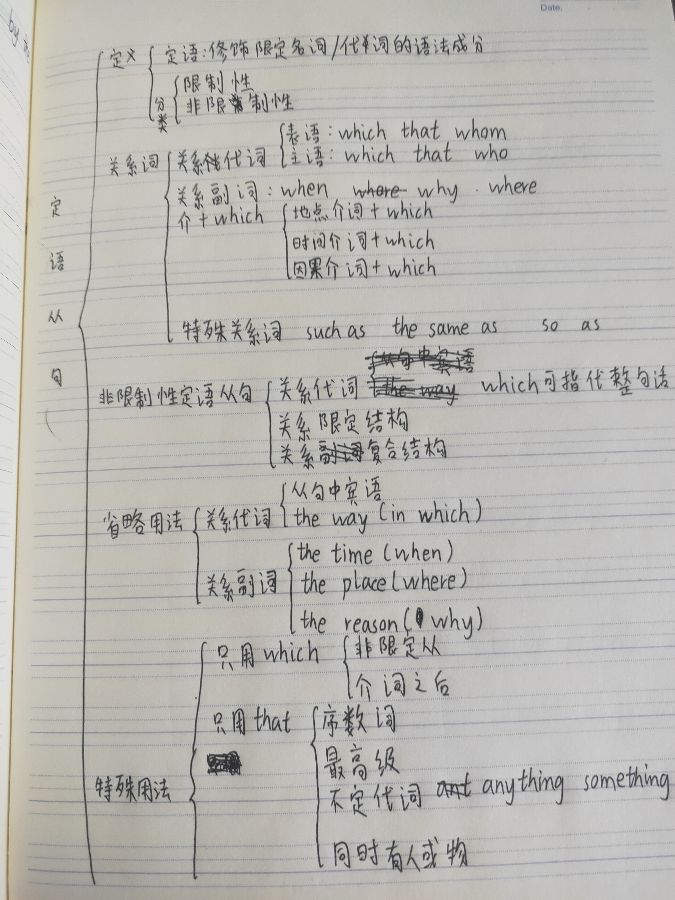 Date.
by
定义 定语:修饰限定名词/代词的语法成分
分类 限制性
非限制性
关系词 关系代词 表语: which that whom
主语: which that who
关系副词: when where why . where
介+which 地点介词+which
时间介词+which
因果介词+which
特殊关系词 such as the same as so as
定语从句
从句中宾语
非限制性定语从句 关系代词 the way which可指代整句话
关系限定结构
关系副词复合结构
省略用法 关系代词 从句中宾语
the way (in which)
关系副词 the time (when)
the place (where)
the reason (why)
只用 which 非限定从
介词之后
只用 that 序数词
最高级
特殊用法 不定代词 ant anything something
同时有人或物